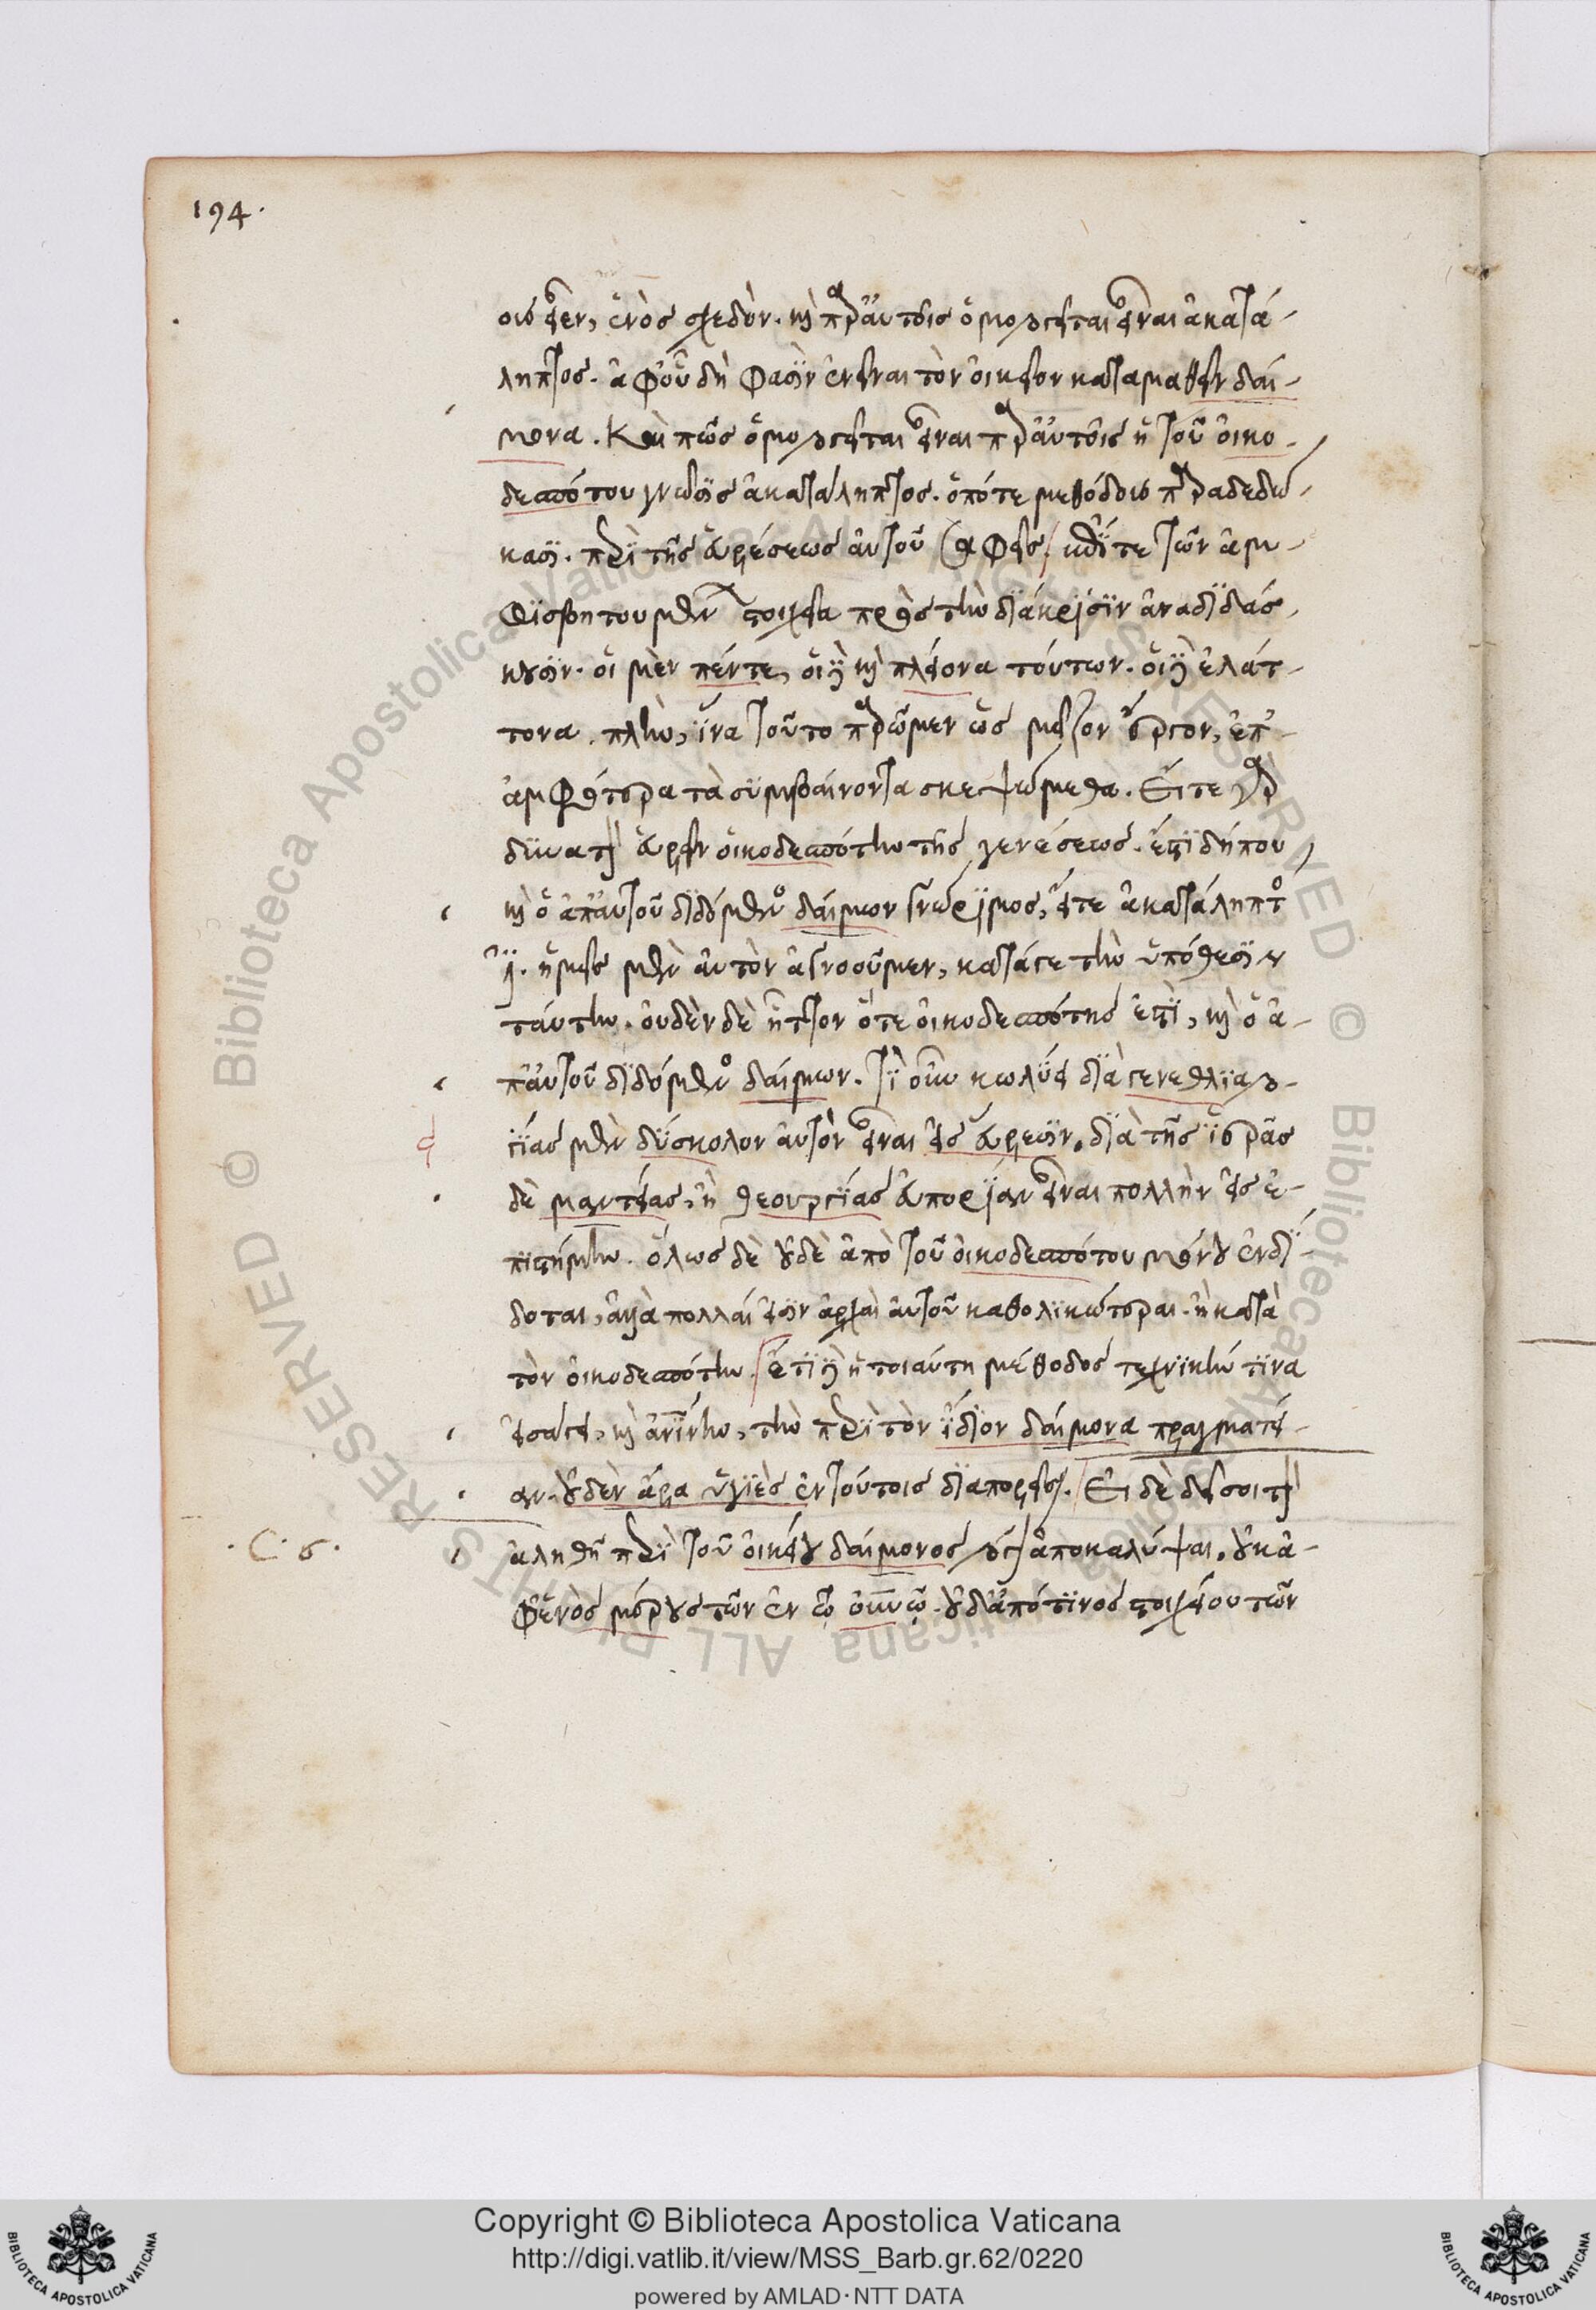 194.
εἶεν, ἑνὸς σχεδὸν. καὶ παρ' αὐτοῖς ὁμολογεῖται εἶναι ἀκατά-
ληπτος. ἀφ' οὗ δὴ φασὶν ἐνεῖναι τὸν οἰκεῖον καταμαθεῖν δαί-
μονα. Καὶ πῶς ὁμολογεῖται εἶναι παρ' αὐτοῖς ἡ τοῦ οἰκο-
δεσπότου γνῶσις ἀκατάληπτος. ὁπότε μεθόδους παραδεδώ-
κασι. περὶ τῆς εὑρέσεως αὐτοῦ σαφεῖς, καὶ ἐπί τε τῶν ἀμ-
φισβητουμένων στοιχεῖα πρὸς τὴν διάκρισιν ἀναδιδάσ-
κουσιν. οἱ μὲν πέντε, οἱ δὲ καὶ πλείονα τούτων. οἱ δὲ ἐλάτ-
τονα. πλὴν, ἵνα τοῦτο παρῶμεν ὡς μεῖζον ὕστερον, ἐπ'
ἀμφότερα τὰ συμβαίνοντα σκεψώμεθα. Εἴτε γὰρ
δυνατὸν εὑρεῖν οἰκοδεσπότην τῆς γενέσεως. ἔστι δήπου
καὶ ὁ ἀπ' αὐτοῦ διδόμενος δαίμων γνώριμος, εἴτε ἀκατάληπτόν
ἐστιν. ἡμεῖς μὲν αὐτὸν ἀγνοοῦμεν, κατά γε τὴν ὑπόθεσιν
ταύτην. οὐδὲν δὲ ἧττον ὅτε οἰκοδεσπότης ἐστὶ, καὶ ὁ ἀ-
π' αὐτοῦ διδόμενος δαίμων. τί οὖν κωλύει διὰ γενεθλιαλο-
γίας μὲν δύσκολον αὐτὸν εἶναι εἰς εὕρεσιν, διὰ τῆς ἱερᾶς
δὲ μαντείας, ἢ θεουργίας εὐπορίαν εἶναι πολλὴν εἰς ἐ-
πιστήμην. ὅλως δὲ οὐδὲ ἀπὸ τοῦ οἰκοδεσπότου μόνου ἐνδί-
δοται, ἀλλὰ πολλαί εἰσιν ἀρχαὶ αὐτοῦ καθολικώτεραι. ἢ κατὰ
τὸν οἰκοδεσπότην. ἔτι δὲ ἡ τοιαύτη μέθοδος τεχνικήν τινα
εἰσάγει, καὶ ἀνθρωπίνην, τὴν περὶ τὸν ἴδιον δαίμονα πραγματεί-
αν. οὐδὲν ἄρα ὑγιὲς ἐν τούτοις διαπορεῖς. Εἰ δὲ δεῖ σοι τὸν
.C.6. ἀληθῆ περὶ τοῦ οἰκείου δαίμονος λόγον ἀποκαλύψαι, οὐκ ἀ-
φ' ἑνὸς μέρους τῶν ἐν τῷ οὐρανῷ. οὐδ' ἀπό τινος στοιχείου τῶν
Copyright © Biblioteca Apostolica Vaticana
http://digi.vatlib.it/view/MSS_Barb.gr.62/0220
powered by AMLAD·NTT DATA